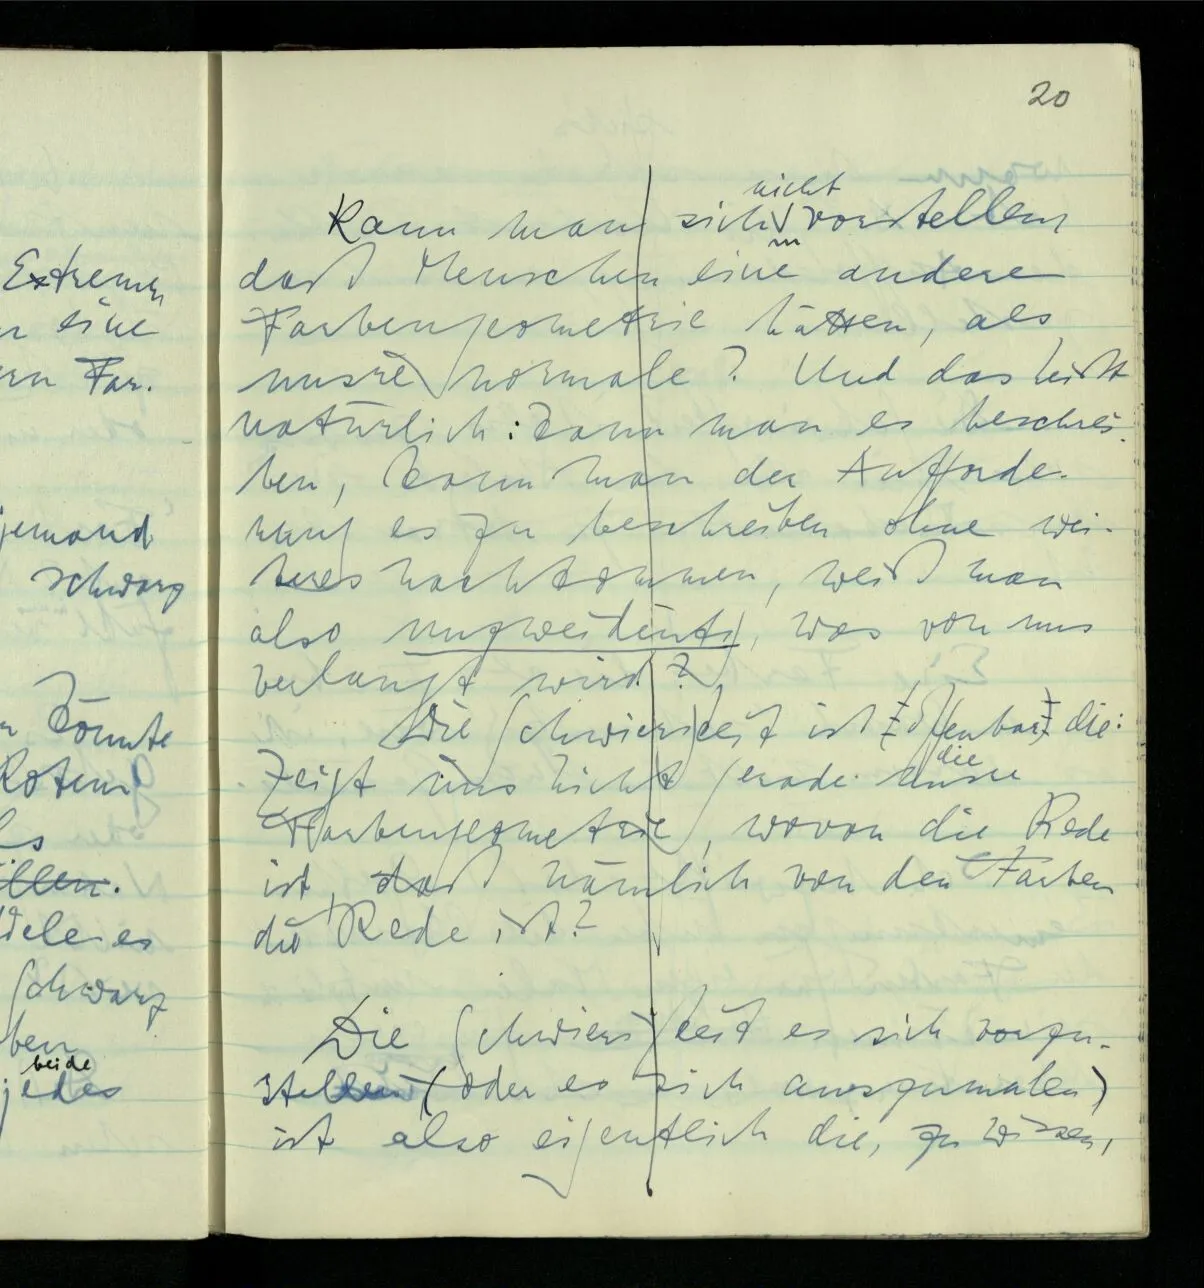 20
Extremen
eine
Far.
jemand
schwarz
könnte
Roten
beide
jedes
schwarz
nicht
Kann man sich vorstellen
daß Menschen eine andere
Farbengeometrie hätten, als
unsre normale? Und das heißt
natürlich: Kann man es beschrei-
ben, kann man der Aufforde-
rung es zu beschreiben ohne wei-
teres nachkommen, weiß man
also unzweideutig, was von uns
verlangt wird?
Die Schwierigkeit ist offenbar die:
die
Zeigt uns nicht gerade unsre
Farbengeometrie, wovon die Rede
ist, daß nämlich von den Farben
die Rede ist?
Die Schwierigkeit es sich vorzu-
stellen (oder es sich auszumalen)
ist also eigentlich die, zu wissen,